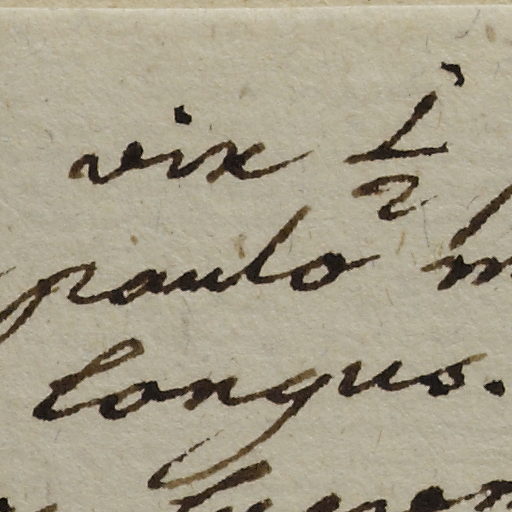 vix 1/2
paulo
longus.